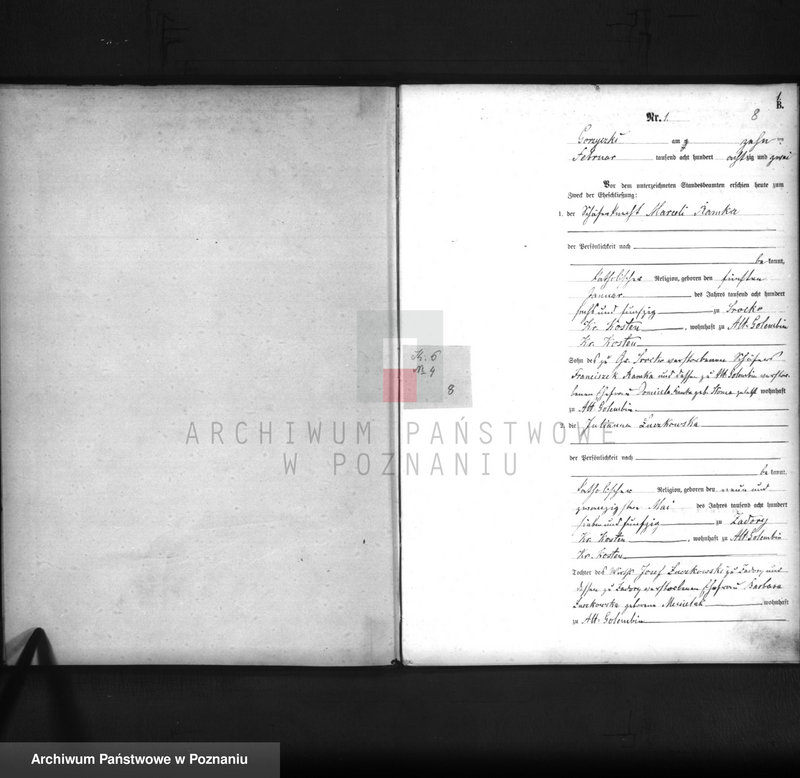 B.
Nr. 1
8
Gorzyczki am zehn ten
Februar tausend acht hundert achtzig und zwei
Vor dem unterzeichneten Standesbeamten erschien heute zum
Zweck der Eheschließung:
1. der Schäferknecht Marceli Ramka
der Persönlichkeit nach
be kannt,
katholischer Religion, geboren den fünften
Januar des Jahres tausend acht hundert
und fünfzig zu Srocko
Kr. Kosten, wohnhaft zu Alt Golembin
Kr. Kosten
Sohn des zu Gr. Srocko verstorbenen Schäfers
Franciszek Ramka und dessen zu Alt Golembin verstor-
benen Ehefrau geb. zuletzt wohnhaft
zu Alt Golembin
2. die Julianna Luczkowska
der Persönlichkeit nach
be kannt,
katholischer Religion, geboren den neun und
zwanzigsten Mai des Jahres tausend acht hundert
sieben und fünfzig zu Zadory
Kr. Kosten, wohnhaft zu Alt Golembin
Kr. Kosten
Tochter des Wirths Josef Luczkowski zu Zadory und
dessen zu Zadory verstorbenen Ehefrau Barbara
Luczkowska geborene wohnhaft
zu Alt Golembin
8
ARCHIWUM PAŃSTWOWE
W POZNANIU
Archiwum Państwowe w Poznaniu